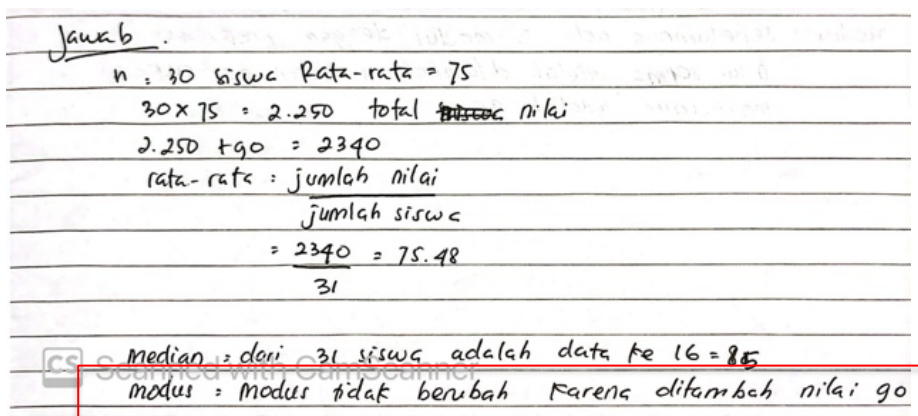 Jawab.
n : 30 siswa Rata-rata = 75
30 x 75 = 2.250 total nilai
2.250 + 90 = 2340
rata-rata : jumlah nilai
jumlah siswa
= 2340 = 75.48
31
median : dari 31 siswa adalah data ke 16 = 85
CS Scanned with CamScanner
modus : Modus tidak berubah karena ditambah nilai 90